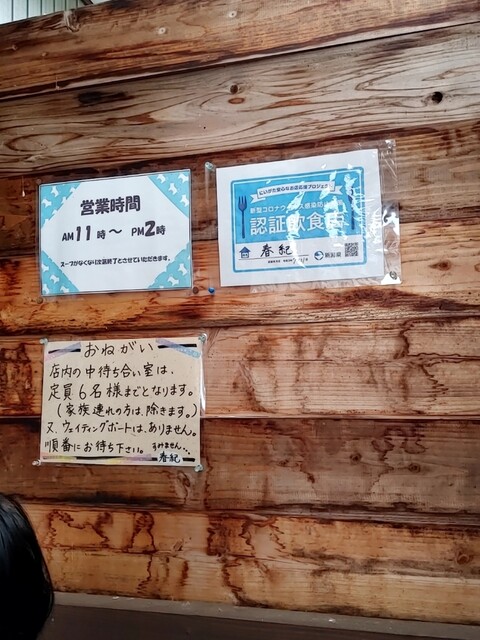 営業時間
AM 11時～ PM 2時
スープがなくなり次第終了とさせていただきます。
にいがた安心なお店応援プロジェクト
新型コロナウイルス感染防止
認証飲食店
春紀
新潟県
おねがい
店内の中待ち合い室は、
定員6名様までとなります。
(家族連れの方は、除きます。)
又、ウェイティングボードは、ありません。
順番にお待ち下さい。 すみません…
春紀